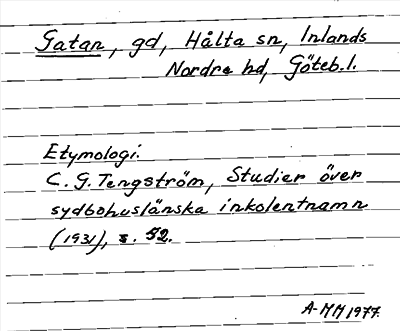 Gatan, gd, Hålta sn, Inlands
Nordre hd, Göteb.l.
Etymologi.
C. G. Tengström, Studier över
sydbohuslänska inkolentnamn
(1931), s. 52.
A-MM 1977.